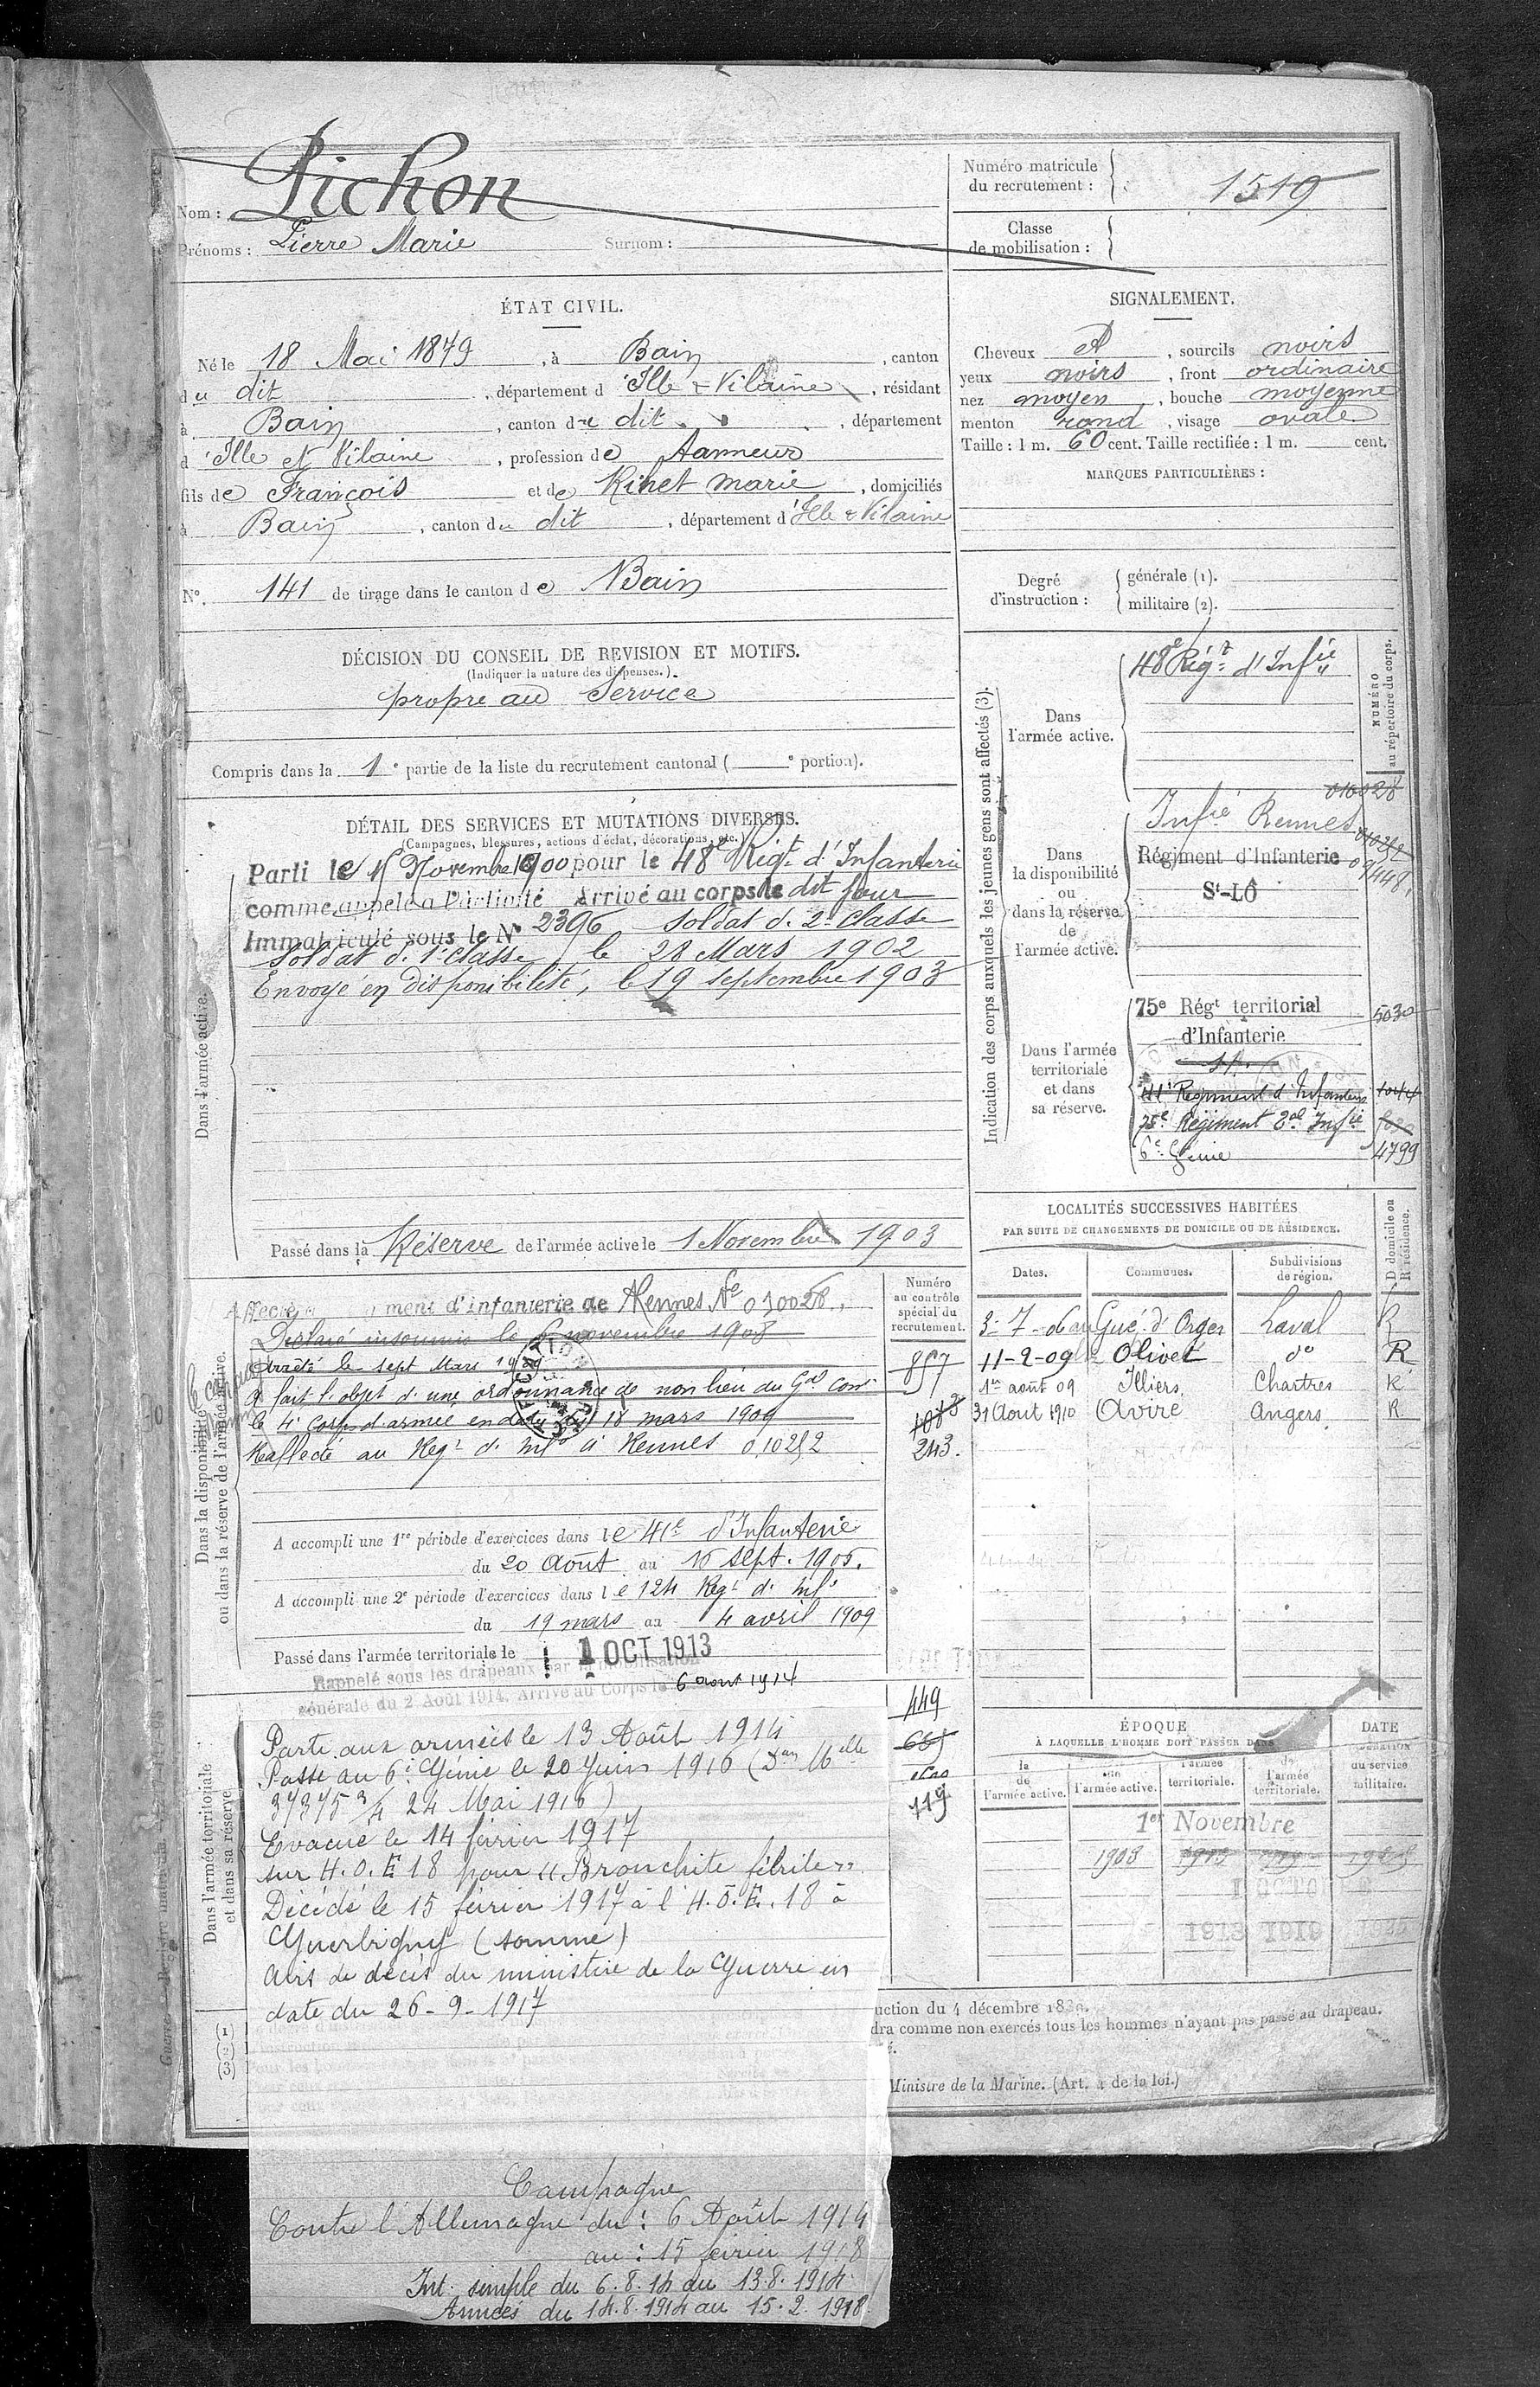 Nom : Pichon
Prénoms : Pierre Marie Surnom :
Numéro matricule du recrutement : 1519
Classe de mobilisation :
ÉTAT CIVIL.
Né le 18 Mai 1879, à Bain, canton
du dit, département d'Ille & Vilaine, résidant
à Bain, canton du dit, département
d'Ille et Vilaine, profession de tanneur
fils de François et de Rihet marie, domiciliés
à Bain, canton du dit, département d'Ille & Vilaine
N°. 141 de tirage dans le canton de Bain
SIGNALEMENT.
Cheveux d, sourcils noirs
yeux noirs, front ordinaire
nez moyen, bouche moyenne
menton rond, visage ovale
Taille : 1 m. 60 cent. Taille rectifiée : 1 m. cent.
MARQUES PARTICULIÈRES :
Degré d'instruction : générale (1).
militaire (2).
DÉCISION DU CONSEIL DE REVISION ET MOTIFS.
(Indiquer la nature des dispenses.)
propre au Service
Compris dans la 1e partie de la liste du recrutement cantonal ( e portion).
DÉTAIL DES SERVICES ET MUTATIONS DIVERSES.
(Campagnes, blessures, actions d'éclat, décorations, etc.)
Parti le 15 Novembre 1900 pour le 48e Régt d'Infanterie
comme appelé à l'activité Arrivé au corps le dit jour
Immatriculé sous le N° 2396 Soldat d. 2e classe
Soldat d. 1e classe, le 28 Mars 1902
Envoyé en disponibilité, le 19 septembre 1903
Dans l'armée active.
Passé dans la Réserve de l'armée active le 1 Novembre 1903
Indication des corps auxquels les jeunes gens sont affectés (3).
NUMÉRO au répertoire du corps.
Dans l'armée active.
48e Régt d'Infie
Dans la disponibilité ou dans la réserve de l'armée active.
010028
Infie Rennes
Régiment d'Infanterie
St-LÔ
Dans l'armée territoriale et dans sa réserve.
75e Régt territorial 5030
d'Infanterie
41e Régiment d'Infanterie 1044
75e Régiment Eal Infie
6e Génie 4799
LOCALITÉS SUCCESSIVES HABITÉES
PAR SUITE DE CHANGEMENTS DE DOMICILE OU DE RÉSIDENCE.
Dates. Communes. Subdivisions de région. D domicile ou R résidence.
3-7-06 au Gué-d'Orger Laval R
11-2-09 Olivet do R
1er août 09 Illiers Chartres R
31 Aout 1910 Aviré Angers R
Dans la disponibilité ou dans la réserve de l'armée active.
Numéro au contrôle spécial du recrutement.
Affecté ment d'infanterie de Rennes No 010028.
Déclaré insoumis le 6 novembre 1908
Arrêté le sept Mars 1909
A fait l'objet d'une ordonnance de non lieu du Gal Comt
le 4e Corps d'armée en date du 18 mars 1909
Réaffecté au Regt d. Infie à Rennes
857
243.
A accompli une 1re période d'exercices dans le 41e d'Infanterie
du 20 Août au 16 sept. 1906.
A accompli une 2e période d'exercices dans le 124 Regt d. Infie
du 19 mars au 4 avril 1909
Passé dans l'armée territoriale le 1 OCT 1913
Rappelé sous les drapeaux par la mobilisation
générale du 2 Août 1914. Arrivé au Corps le 6 aout 1914
Dans l'armée territoriale et dans sa réserve
449
719
Parti aux armées le 13 Août 1914
Passé au 6e Génie le 20 Juin 1916 (Don Mlle
37375 3/4 24 Mai 1916)
Evacué le 14 février 1917
sur H.O.E 18 pour "Bronchite fébrile"
Décédé le 15 février 1917 à l'H.O.E. 18 à
Guerbigny (somme)
Avis de décès du ministère de la Guerre en
date du 26-9-1917
ÉPOQUE
À LAQUELLE L'HOMME DOIT PASSER DANS
la de l'armée active.
l'armée active.
l'armée territoriale.
de l'armée territoriale.
DATE
du service militaire.
1er Novembre
1903
1er OCTOBRE
1913 1919
(1)
(2)
(3)
uction du 4 décembre 1889.
dra comme non exercés tous les hommes n'ayant pas passé au drapeau.
Ministre de la Marine. (Art. 4 de la loi.)
Campagne
Contre l'Allemagne du : 6 Août 1914
au : 15 février 1918
Int. simple du 6.8.14 au 13.8.1914
Armées du 14.8.1914 au 15.2.1918.